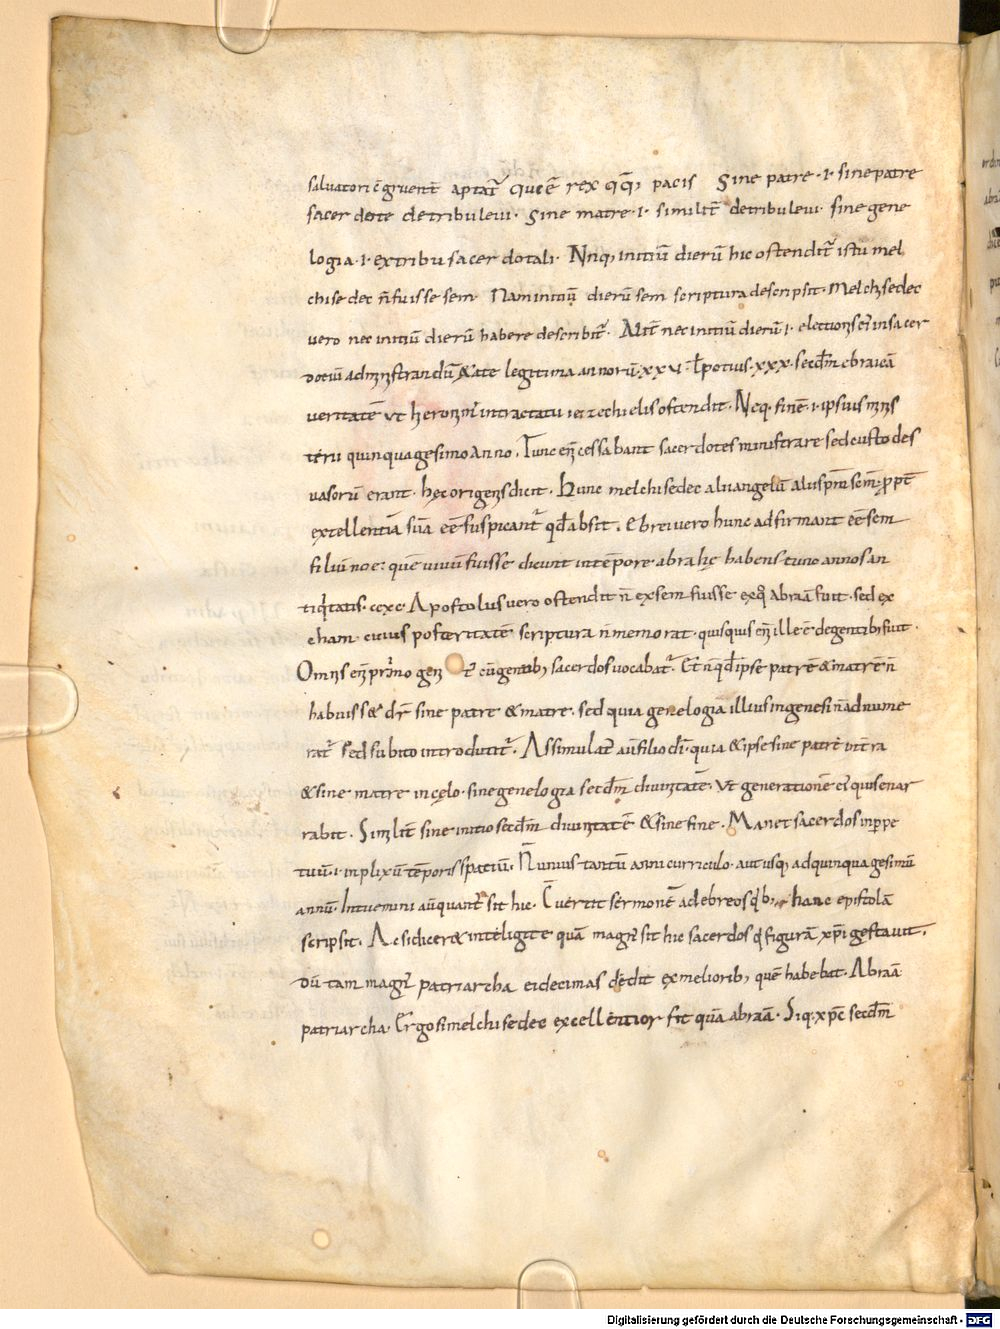 salvatori c̄gruenter aptat̄ Que ē rex q̄q̄, pacis Sine patre ·i· sine patre
sacerdote de tribu leui· Sine matre ·i· similit̄ de tribu leui· sine gene
logia ·i· ex tribu sacerdotali· Neq, initiū dierū hic ostendit̄ istū mel
chisedec n̄ fuisse sem Nam initiū dierū sem scriptura descripsit· Melchisedec
vero nec initiū dierū habere describit̄. Alit̄ nec initiū dierū ·i· electionis ei in sacer
dotiū administrandū & ate legitima annorū ·xxv· ł potius ·xxx· secdm̄ ebraicā
veritatē ut heronim̄ in tractatu iezechielis ostendit· Neq, finē ·i· ipsius minis
terii quinquagesimo anno. Tunc eni cessabant sacerdotes ministrare sed custodes
vasorū erant· hęc origenis dicit· Hunc melchisedec alii angelū alii spm̄ scm̄ ꝓpt̄
excellentiā suā eē suspicant̄ qd̄ absit. Ebrei vero hunc adfirmant eē sem
filiū noe· quē vivū fuisse dicunt in tēpore abrahę habens tunc annos an
tiq̄tatis· ccxc· Apostolus vero ostendit n̄ ex sem fuisse ex q̊ abraā fuit· sed ex
cham· cuius posteritatē scriptura n̄ memorat· quisquis eni ille ē de gentib; fuit·
Omnis eni primogenit̄ cunctis gentib; sacerdos vocabat̄. Et n̄ qd̄ ipse patrē & matrē n̄
habuisset dr̄ sine patre & matre· sed quia genelogia illius in genesi n̄ adnume
rat̄ sed subito introducit̄. Assimulat̄ aut̄ filio dī· quia & ipse sine patre in t̄ra
& sine matre in cęlo· sine genelogia secdm̄ divinitatē· Ut generationē ei quis enar
rabit. Similit̄ sine initio secdm̄ divinitatē & sine fine. Manet sacerdos in ppe
tuū ·i· in plixū tēporis spatiū. N̄ unius tantū anni curriculo· aut usq, ad quinquagesimū
annū. Intuemini aut̄ quant̄ sit hic. C̄vertit sermonē ad ebreos q̊b; hanc epistolā
scripsit. Ac si diceret inteligite quā magn̄ sit hic sacerdos q̊ figurā xpi gestavit.
dū tam magn̄ patriarcha ei decimas dedit ex meliorib; quę habebat· Abraā
patriarcha· Ergo si melchisedec excellentior fit quā abraā· Siq· xpc secdm̄
Digitalisierung gefördert durch die Deutsche Forschungsgemeinschaft - DFG